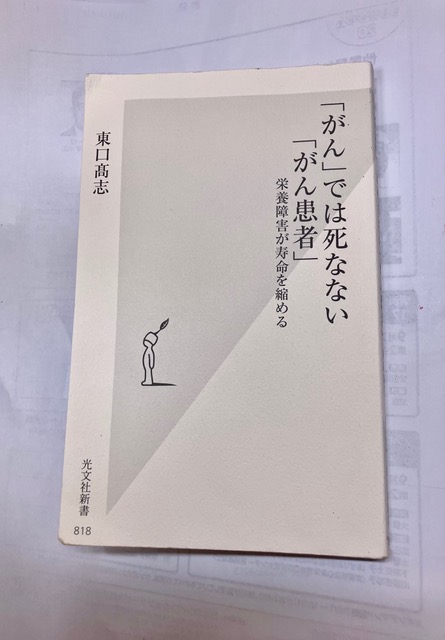 「がん」では死なない
「がん患者」
栄養障害が寿命を縮める
東口髙志
光文社新書
818